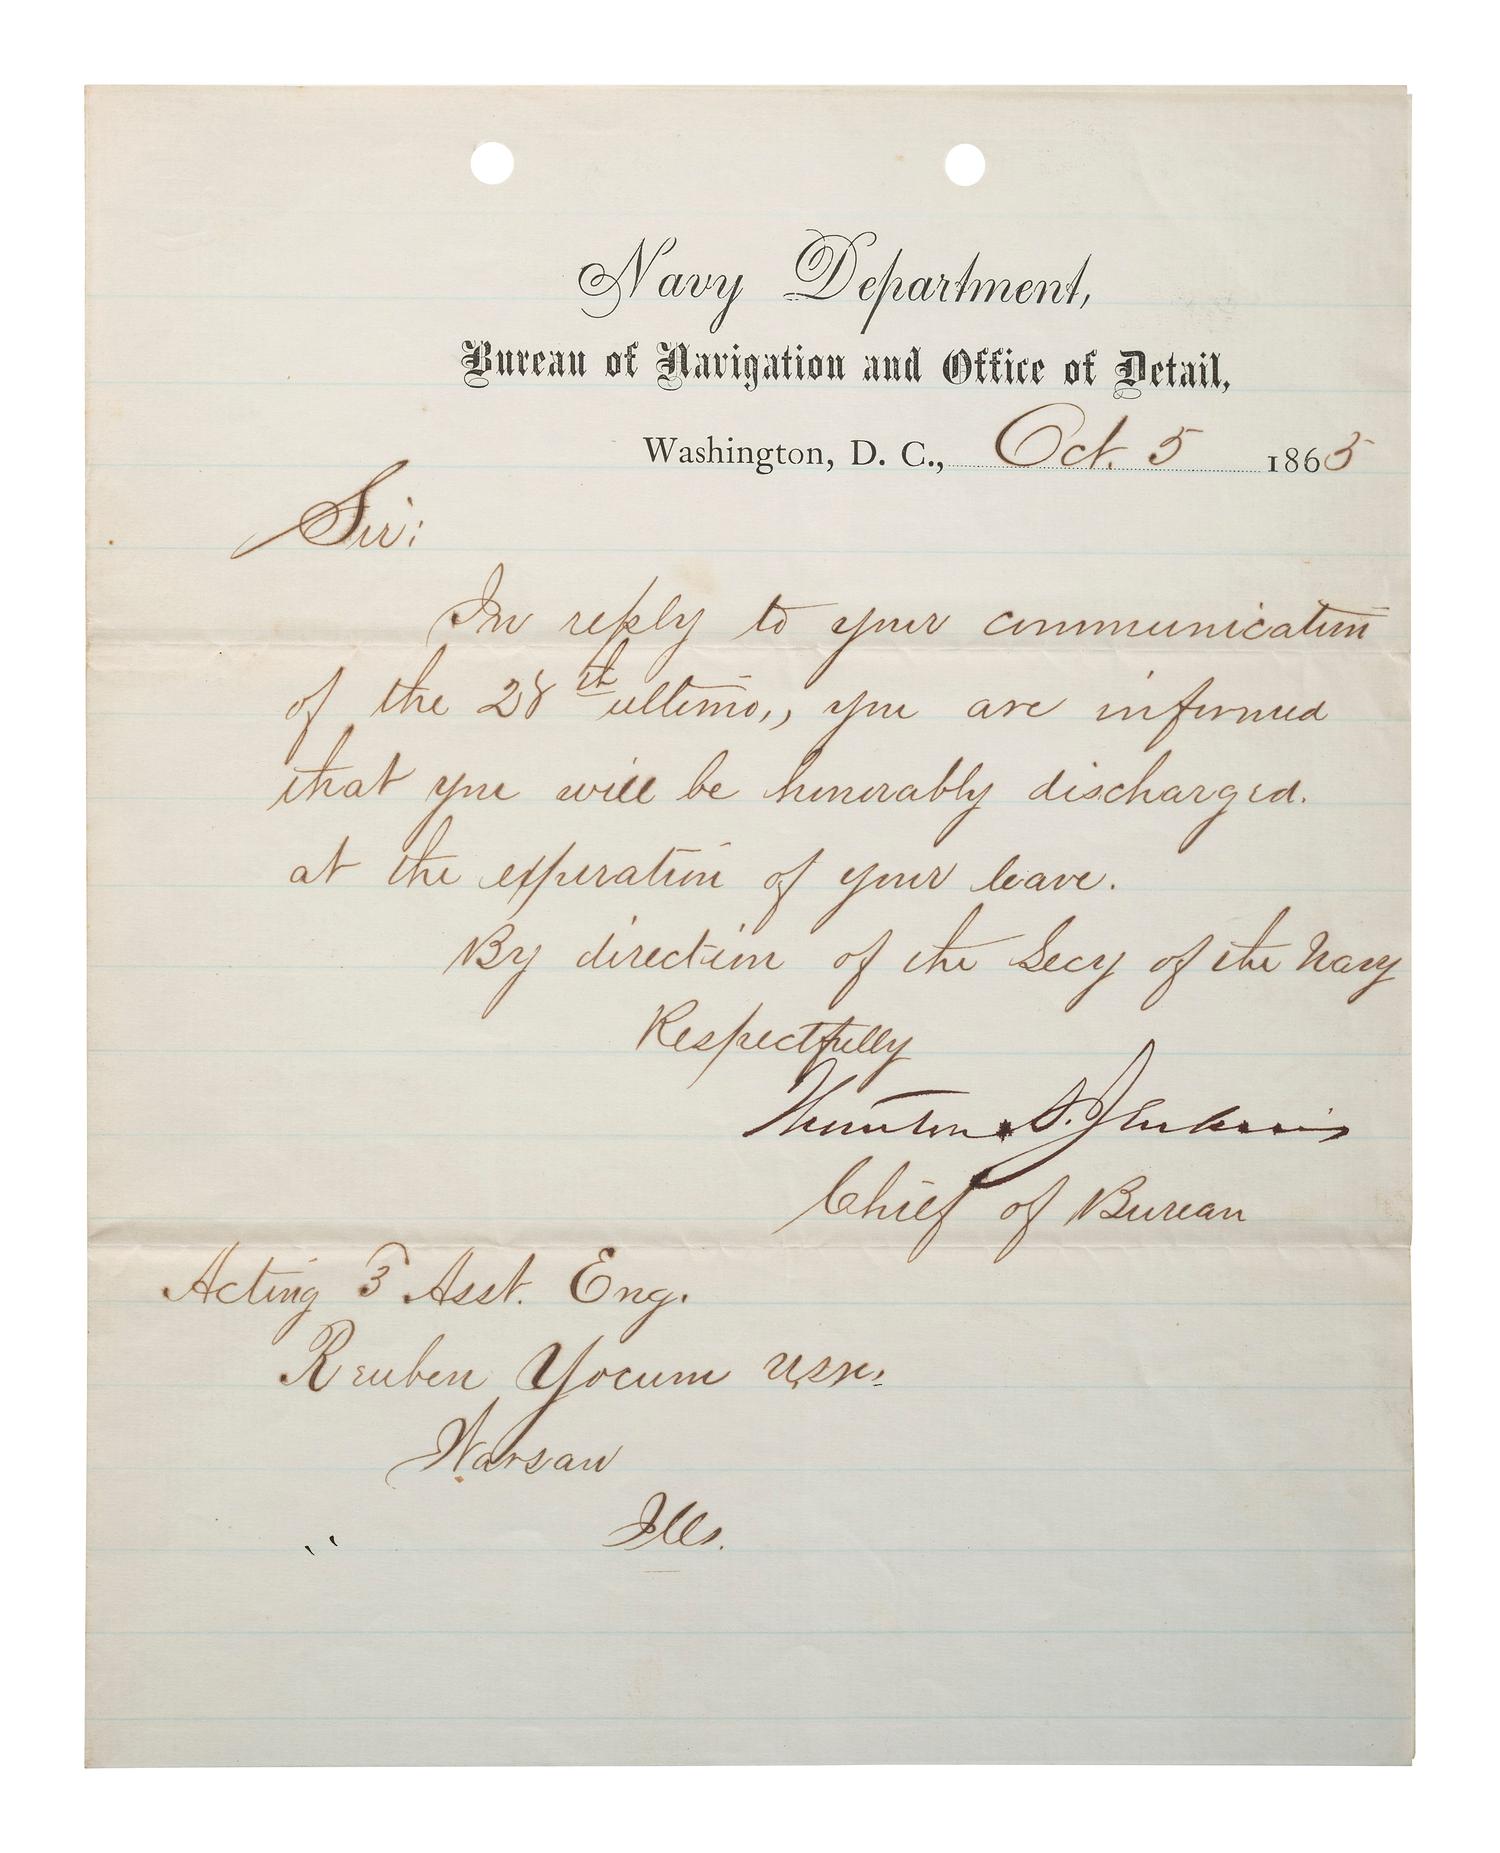 Navy Department,
Bureau of Navigation and Office of Detail,
Washington, D. C., Oct. 5 1865
Sir:
In reply to your communication
of the 28th ultimo,, you are informed
that you will be honorably discharged.
at the experation of your leave.
By direction of the Secy of the Navy
Respectfully
Thornton A. Jenkins
Chief of Bureau
Acting 3 Asst. Eng.
Reuben Yocum USN.
Warsaw
Ills.